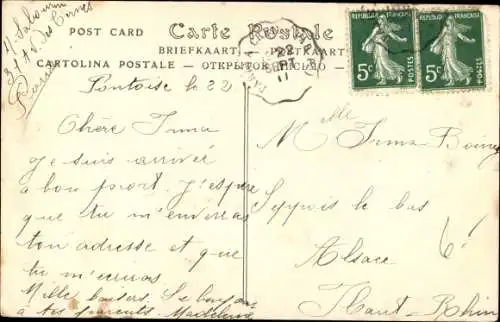 POST CARD Carte Postale
BRIEFKAART POSTKARTE
CARTOLINA POSTALE — ОТКРЫТОЕ ПИСЬМО
RÉPUBLIQUE FRANÇAISE
5c POSTES
RÉPUBLIQUE FRANÇAISE
5c POSTES
Pontoise le 22
Chère Irma
Je suis arrivée
à bon port. J'espère
que tu m'enverras
ton adresse et que
tu m'écriras
Mille baisers. Le bonjour
à tes parents Madeleine
Melle Irma
Seppois le bas
Alsace
Haut-Rhin